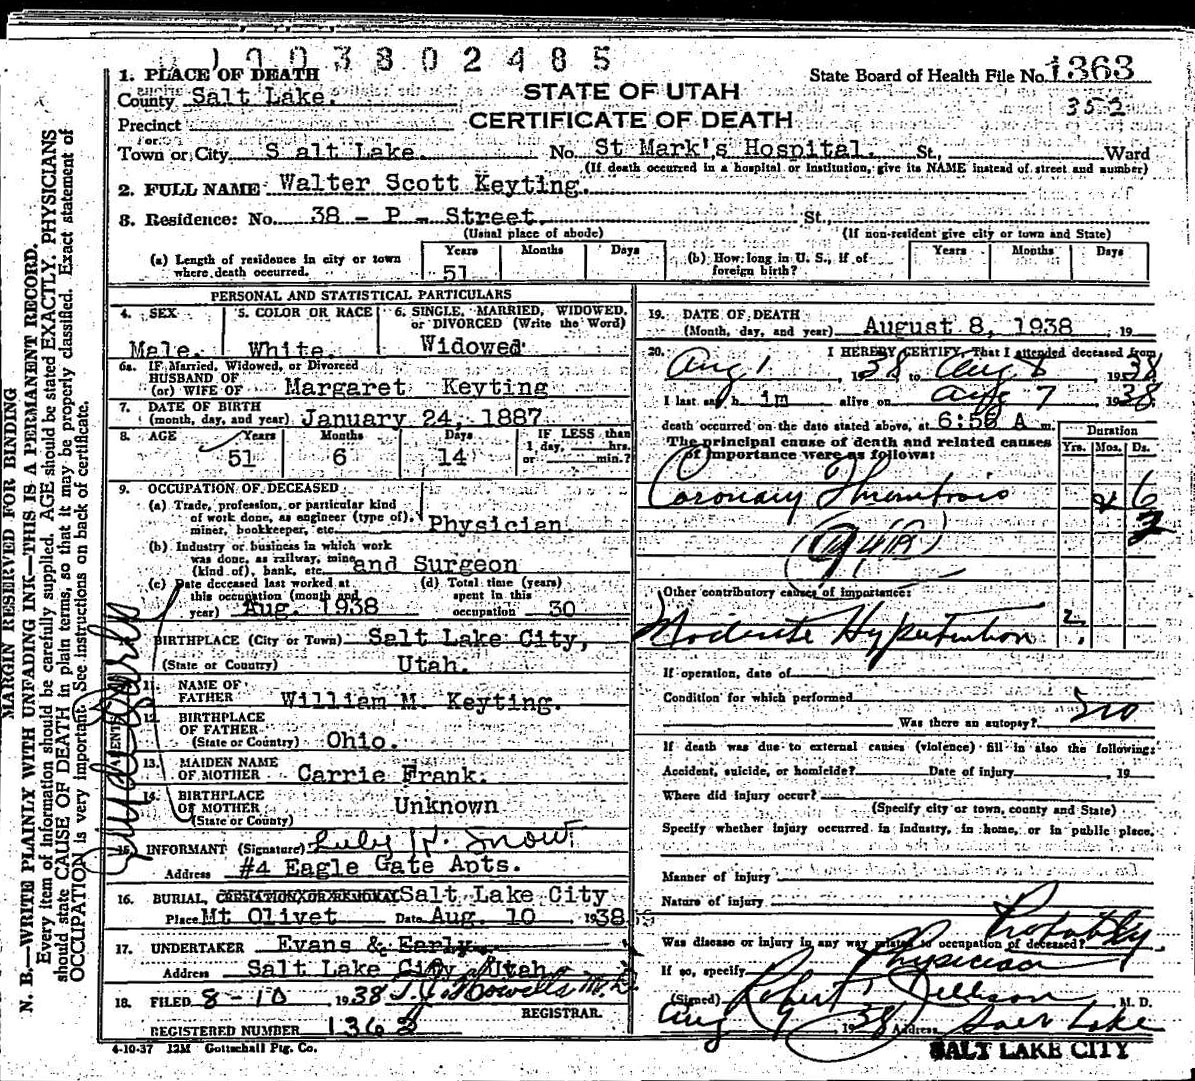 1003802485
1. PLACE OF DEATH
State Board of Health File No. 1363
County Salt Lake.
STATE OF UTAH
352
Precinct
CERTIFICATE OF DEATH
or
Town or City S alt Lake. No. St Mark's Hospital. St., Ward
(If death occurred in a hospital or institution, give its NAME instead of street and number)
2. FULL NAME Walter Scott Keyting.
3. Residence: No. 38 - P - Street. St.
(Usual place of abode) (If non-resident give city or town and State)
(a) Length of residence in city or town where death occurred. Years 51 Months Days
(b) How long in U. S., if of foreign birth? Years Months Days
PERSONAL AND STATISTICAL PARTICULARS
4. SEX Male.
5. COLOR OR RACE White.
6. SINGLE, MARRIED, WIDOWED, or DIVORCED (Write the Word) Widowed
6a. If Married, Widowed, or Divorced
HUSBAND OF
(or) WIFE OF Margaret Keyting
7. DATE OF BIRTH
(month, day, and year) January 24, 1887
8. AGE Years 51 Months 6 Days 14 IF LESS than 1 day, hrs. or min.?
9. OCCUPATION OF DECEASED
(a) Trade, profession, or particular kind
of work done, as engineer (type of),
miner, bookkeeper, etc. Physician
(b) Industry or business in which work
was done, as railway, mine
(kind of), bank, etc. and Surgeon
(c) Date deceased last worked at
this occupation (month and
year) Aug. 1938
(d) Total time (years)
spent in this
occupation 30
BIRTHPLACE (City or Town) Salt Lake City,
(State or Country) Utah.
PARENTS
11. NAME OF
FATHER William M. Keyting.
12. BIRTHPLACE
OF FATHER
(State or Country) Ohio.
13. MAIDEN NAME
OF MOTHER Carrie Frank.
14. BIRTHPLACE
OF MOTHER
(State or Country) Unknown
15. INFORMANT (Signature) Luly H. Snow
Address #4 Eagle Gate Apts.
16. BURIAL, CREMATION OR REMOVAL Salt Lake City
Place Mt Olivet Date Aug. 10 1938
17. UNDERTAKER Evans & Early.
Address Salt Lake City Utah
18. FILED 8-10 1938 T. J. Howells M.D.
REGISTRAR.
REGISTERED NUMBER 1363
4-10-37 12M Gottschall Ptg. Co.
19. DATE OF DEATH
(Month, day, and year) August 8, 1938 , 19
20. I HEREBY CERTIFY, That I attended deceased from
Aug 1 1938 to Aug 8 1938
I last saw h im alive on Aug 7 1938
death occurred on the date stated above, at 6:56 A m.
The principal cause of death and related causes
of importance were as follows:
Duration
Yrs. Mos. Ds.
Coronary Thrombosis 6
Other contributory causes of importance:
Moderate Hypertension ?
If operation, date of
Condition for which performed
Was there an autopsy? no
If death was due to external causes (violence) fill in also the following:
Accident, suicide, or homicide? Date of injury , 19
Where did injury occur?
(Specify city or town, county and State)
Specify whether injury occurred in industry, in home, or in public place.
Manner of injury
Nature of injury
Was disease or injury in any way related to occupation of deceased? Probably
If so, specify Physician
(Signed) Robert M. D.
Aug 9 1938 Address Salt Lake
SALT LAKE CITY
MARGIN RESERVED FOR BINDING
N. B.—WRITE PLAINLY WITH UNFADING INK—THIS IS A PERMANENT RECORD.
Every item of information should be carefully supplied. AGE should be stated EXACTLY. PHYSICIANS
should state CAUSE OF DEATH in plain terms, so that it may be properly classified. Exact statement of
OCCUPATION is very important. See instructions on back of certificate.